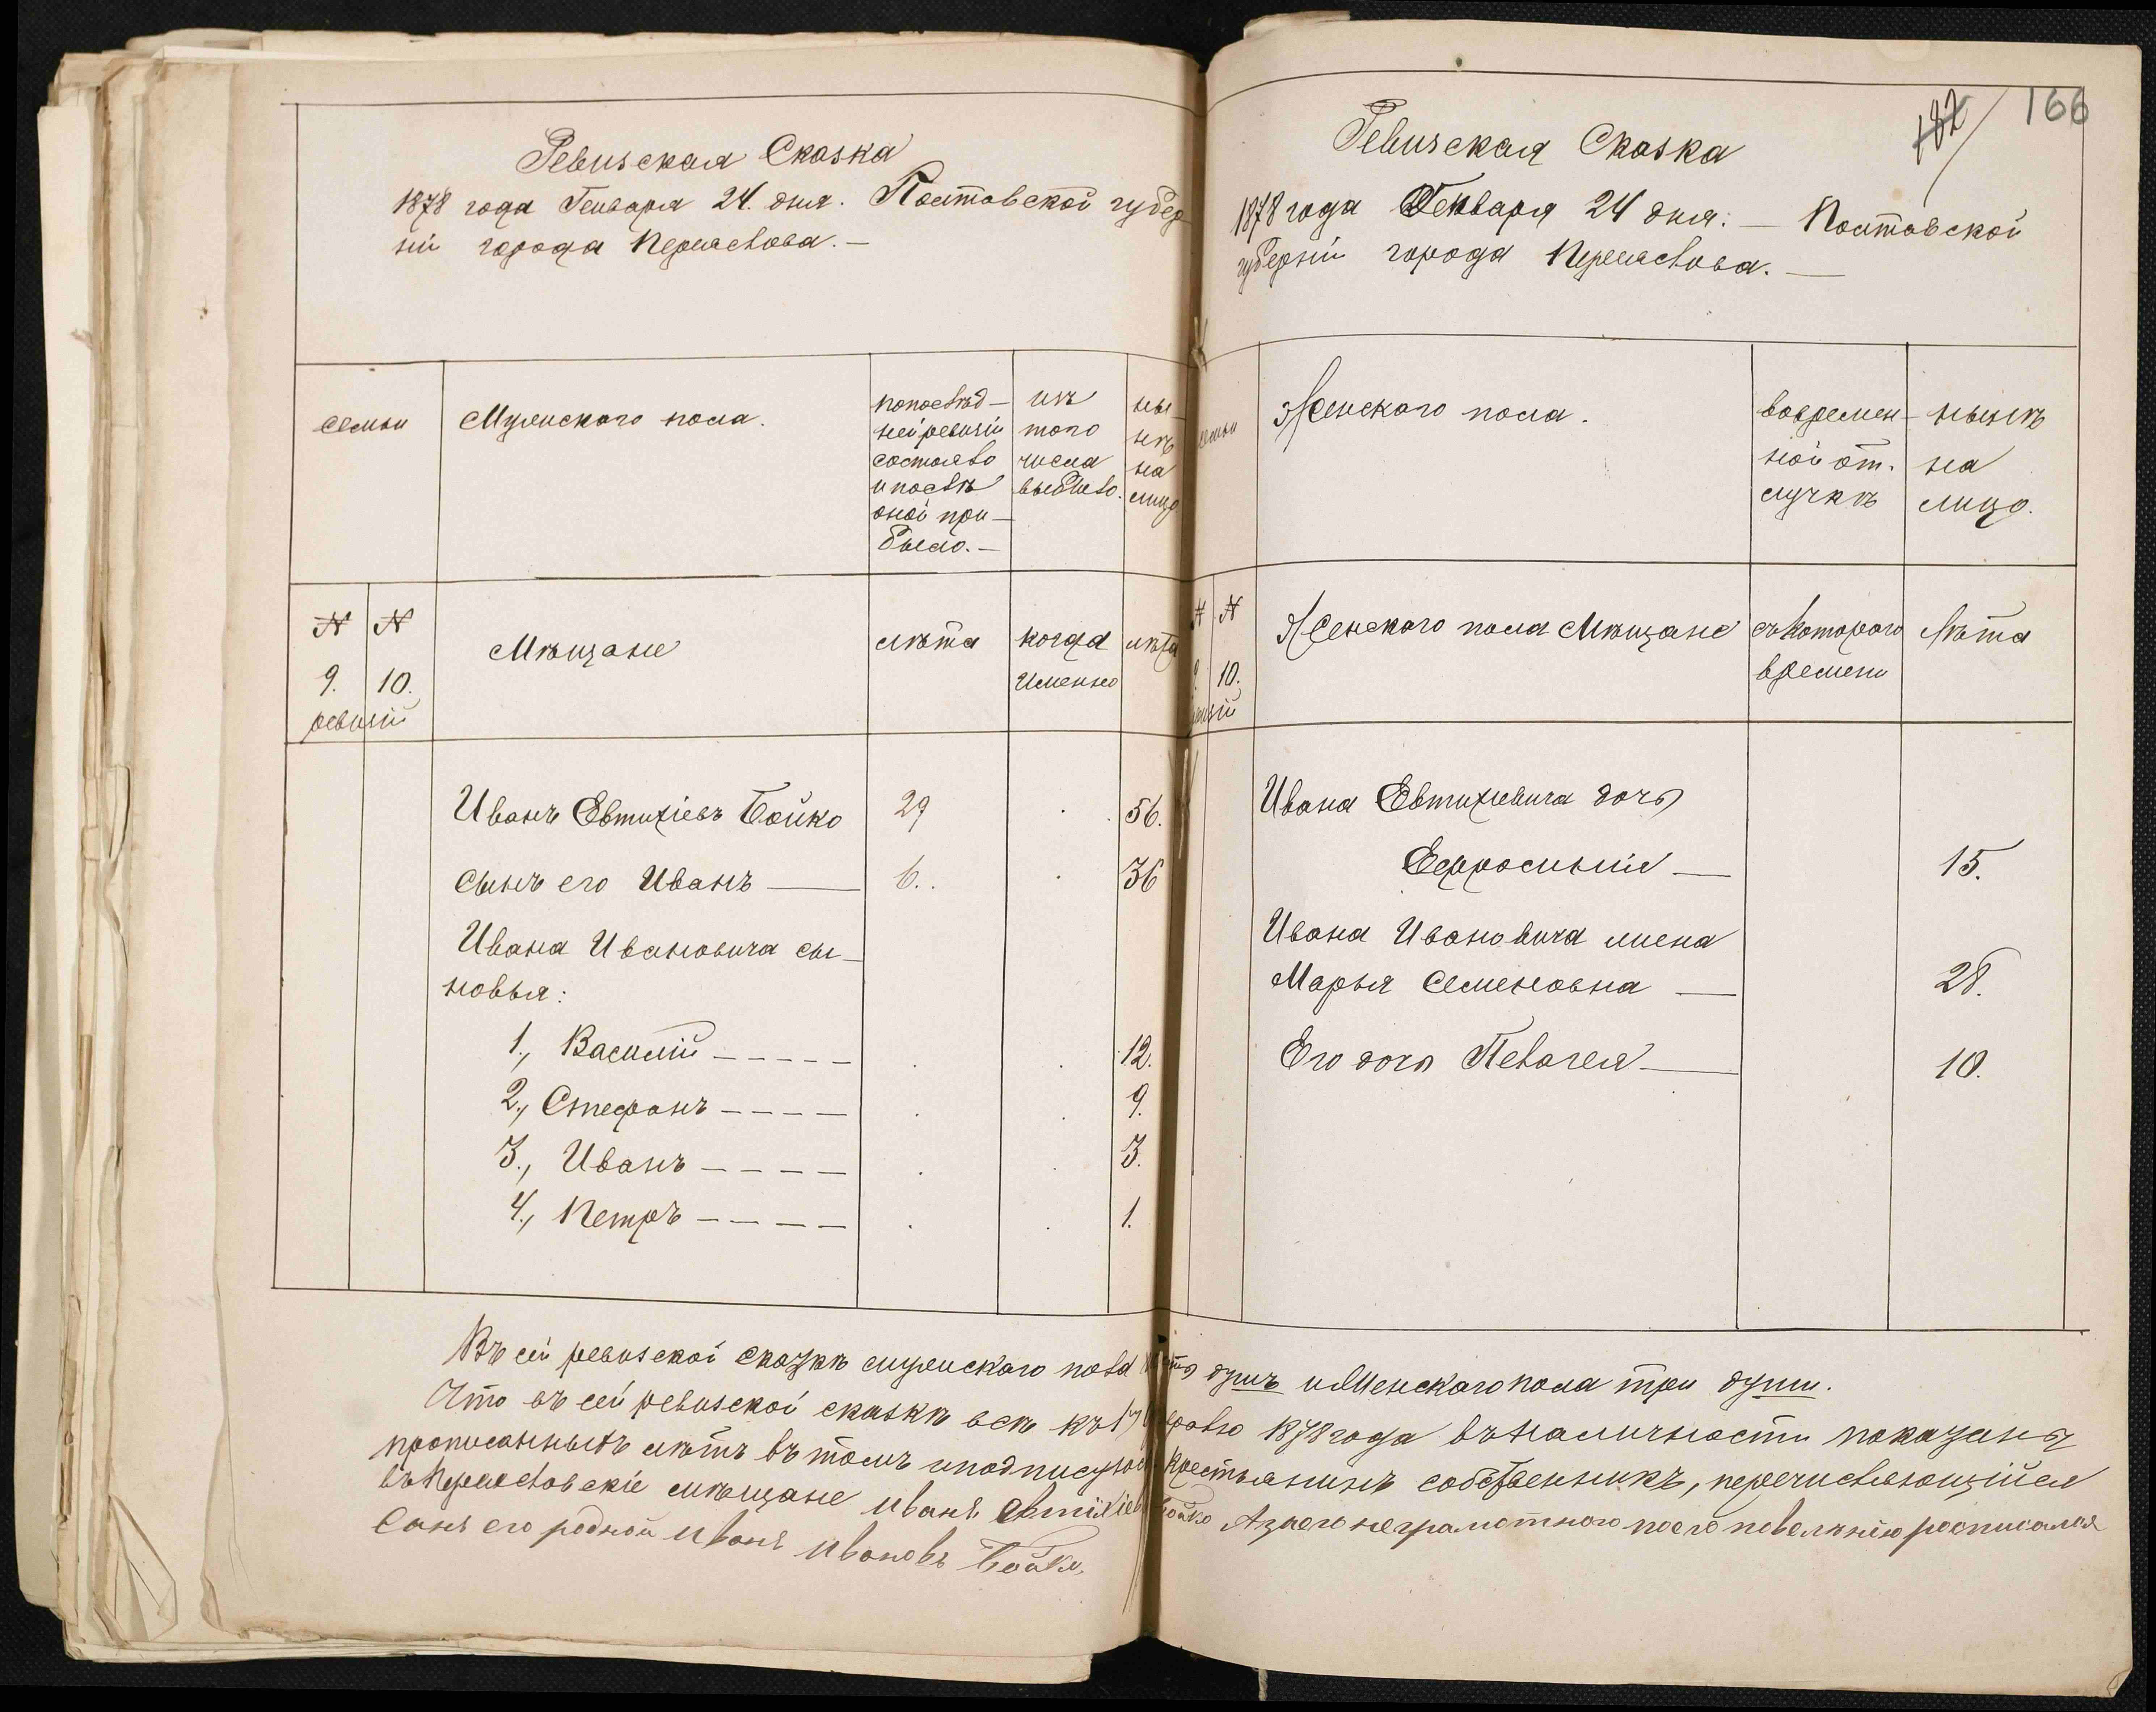 Ревизская Сказка
1878 года Генваря 24. дня. Полтавской губер
нии города Переяслова. —
семьи
Мужеского пола.
попослѣд-
ней ревизіи
состояло
и послѣ
оной при-
было. —
изъ
того
числа
выбыло.
ны-
нѣ
на
лицо
№ №
9. 10.
ревизій
Мѣщане
лѣта
когда
именно
лѣта
Иванъ Евтихіевъ Бойко 29 56.
сынъ его Иванъ — 6. 36
Ивана Ивановича сы-
новья:
1., Василій - - - - - 12.
2., Стефанъ - - - - 9.
3., Иванъ - - - - 3.
4., Петръ - - - - 1.
182 166
Ревизская Сказка
1878 года Генваря 24 дня: — Полтавской
губерніи города Переяслова. —
семьи
Женского пола.
вовремен-
ной от-
лучкѣ
нынѣ
на
лицо.
№ №
10.
Женского пола Мѣщане
съ котораго
времени
Лѣта
Ивана Евтихіевича дочь
Ефросинія — 15.
Ивана Ивановича жена
Марья Семеновна — 28.
Его дочь Пелагея — 10.
Въ сей ревизской сказкѣ мужеского пола шесть душъ и женского пола три души.
Что въ сей ревизской сказкѣ всѣ къ 1878 года въ наличности показаны
прописанныхъ лѣтъ въ томъ и подписуюсь крестьянинъ собственникъ, перечисляющійся
въ Переясловскіе мѣщане Иванъ Евтихіевъ Бойко А за его неграмотного по его повелѣнію росписался
Сынъ его родной Иванъ Ивановъ Бойко.